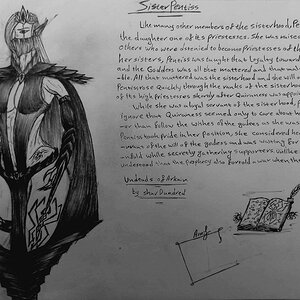 Sister Pentiss
Like many other members of the Sisterhood, Pe
the daughter one of its priestesses. She was raised
others who were destened to become Priestesses of th
her sisters, Pentiss was taught that loyalty toward
and the Goddess was all that mattered and than no
-ble. All that mattered was the sisterhood and she will a
Pentiss rose quickly through the ranks of the sisterhood
of its high priestesses shortly after Quinness was appoin
While she was a loyal servant of the sisterhood, P
ignore that Quinness seemed only to care about h
-er than follow the wishes of the godess as she was
Pentiss took pride in her position, she considered he
of the will of the godess and was Raising for
-nfold while secretly gathering supporters. Unlike
understood that the Prophecy also foretold a war when th
Undeads of Arkan
by sha/Dundred